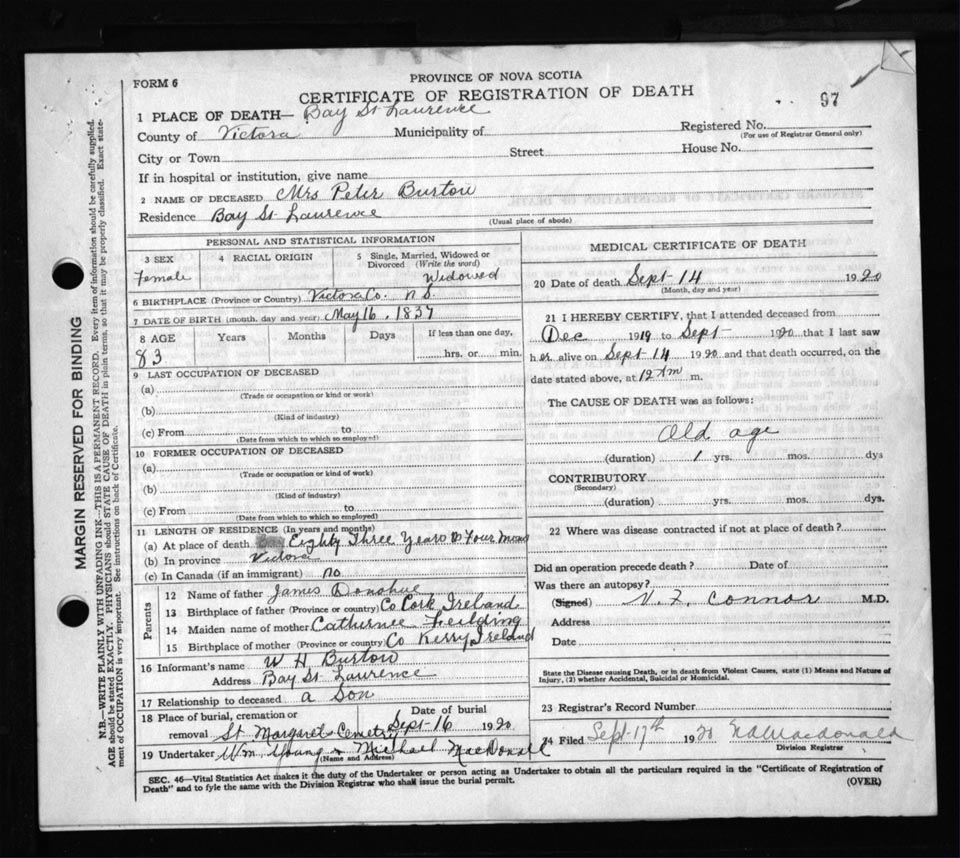 PROVINCE OF NOVA SCOTIA
FORM 6
CERTIFICATE OF REGISTRATION OF DEATH
97
1 PLACE OF DEATH— Bay St Laurence
County of Victora Municipality of Registered No.
(For use of Registrar General only)
City or Town Street House No.
If in hospital or institution, give name
2 NAME OF DECEASED Mrs Peter Burton
Residence Bay St Laurence
(Usual place of abode)
PERSONAL AND STATISTICAL INFORMATION
3 SEX 4 RACIAL ORIGIN 5 Single, Married, Widowed or Divorced (Write the word)
Female Widowed
6 BIRTHPLACE (Province or Country) Victora Co. N S.
7 DATE OF BIRTH (month, day and year) May 16, 1837
8 AGE Years Months Days If less than one day,
83 hrs. or min.
9 LAST OCCUPATION OF DECEASED
(a)
(Trade or occupation or kind or work)
(b)
(Kind of industry)
(c) From to
(Date from which to which so employed)
10 FORMER OCCUPATION OF DECEASED
(a)
(Trade or occupation or kind of work)
(b)
(Kind of industry)
(c) From to
(Date from which to which so employed)
11 LENGTH OF RESIDENCE (In years and months)
(a) At place of death Eighty Three Years Four Mons
(b) In province Victora
(c) In Canada (if an immigrant) no
Parents
12 Name of father James Donohue
13 Birthplace of father (Province or country) Co Cork Ireland
14 Maiden name of mother Catherine
15 Birthplace of mother (Province or country) Co Kerry Ireland
16 Informant's name W H Burton
Address Bay St Laurence
17 Relationship to deceased a Son
18 Place of burial, cremation or Date of burial
removal St Margarets Cemetry Sept-16 1920
19 Undertaker Wm. Young & Michael MacDonald
(Name and Address)
MEDICAL CERTIFICATE OF DEATH
20 Date of death Sept-14 1920
(Month, day and year)
21 I HEREBY CERTIFY, that I attended deceased from
Dec 1919 to Sept 1920 that I last saw
her alive on Sept 14 1920 and that death occurred, on the
date stated above, at 12 Am m.
The CAUSE OF DEATH was as follows:
Old age
(duration) 1 yrs. mos. dys
CONTRIBUTORY
(Secondary)
(duration) yrs. mos. dys.
22 Where was disease contracted if not at place of death?
Did an operation precede death? Date of
Was there an autopsy?
(Signed) Connor M.D.
Address
Date
State the Disease causing Death, or in death from Violent Causes, state (1) Means and Nature of
Injury, (2) whether Accidental, Suicidal or Homicidal.
23 Registrar's Record Number
24 Filed Sept-17th 1920 Macdonald
Division Registrar
SEC. 46—Vital Statistics Act makes it the duty of the Undertaker or person acting as Undertaker to obtain all the particulars required in the "Certificate of Registration of
Death" and to fyle the same with the Division Registrar who shall issue the burial permit.
(OVER)
MARGIN RESERVED FOR BINDING
N.B.—WRITE PLAINLY WITH UNFADING INK—THIS IS A PERMANENT RECORD. Every item of information should be carefully supplied.
AGE should be stated EXACTLY. PHYSICIANS should STATE CAUSE OF DEATH in plain terms, so that it may be properly classified. Exact state-
ment of OCCUPATION is very important. See instructions on back of Certificate.